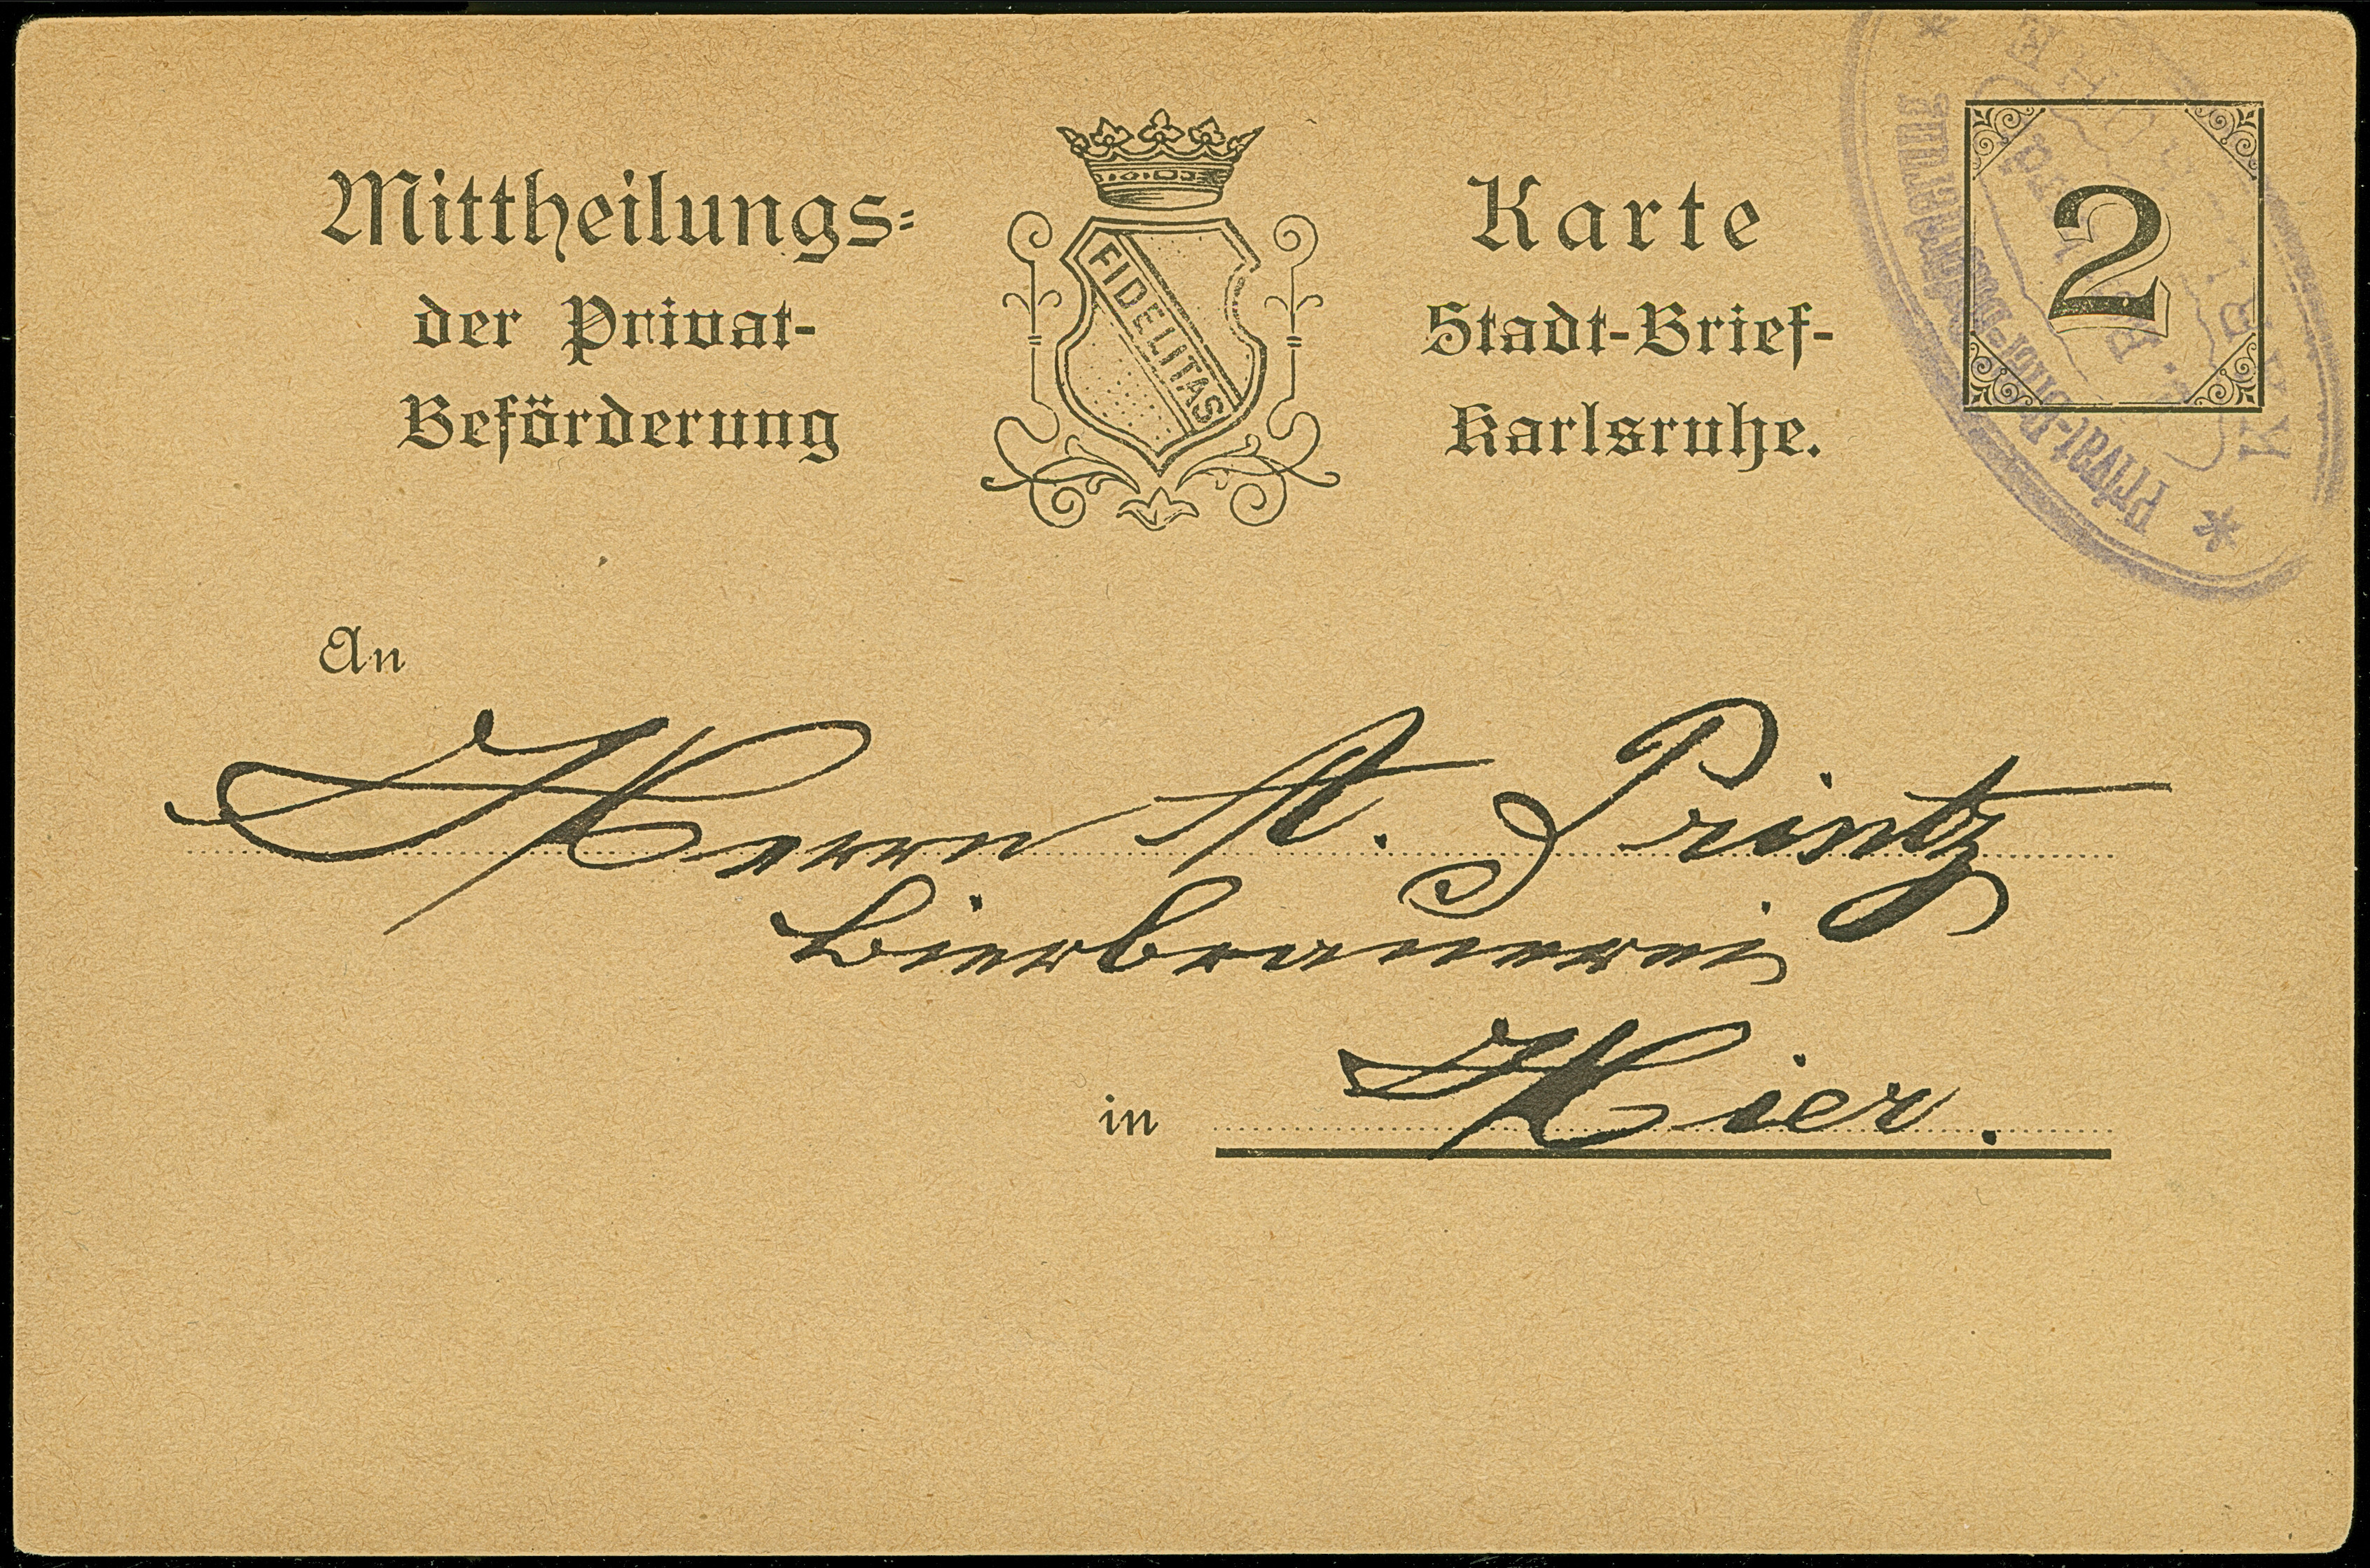 Mittheilungs= Karte
der Privat- Stadt-Brief-
Beförderung Karlsruhe.
FIDELITAS
2
Privat-Brief-Beförderung
An
Herrn A. Printz
Bierbrauerei
in Hier.